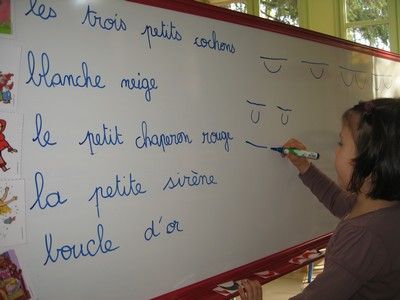 les trois petits cochons
blanche neige
le petit chaperon rouge
la petite sirène
boucle d'or